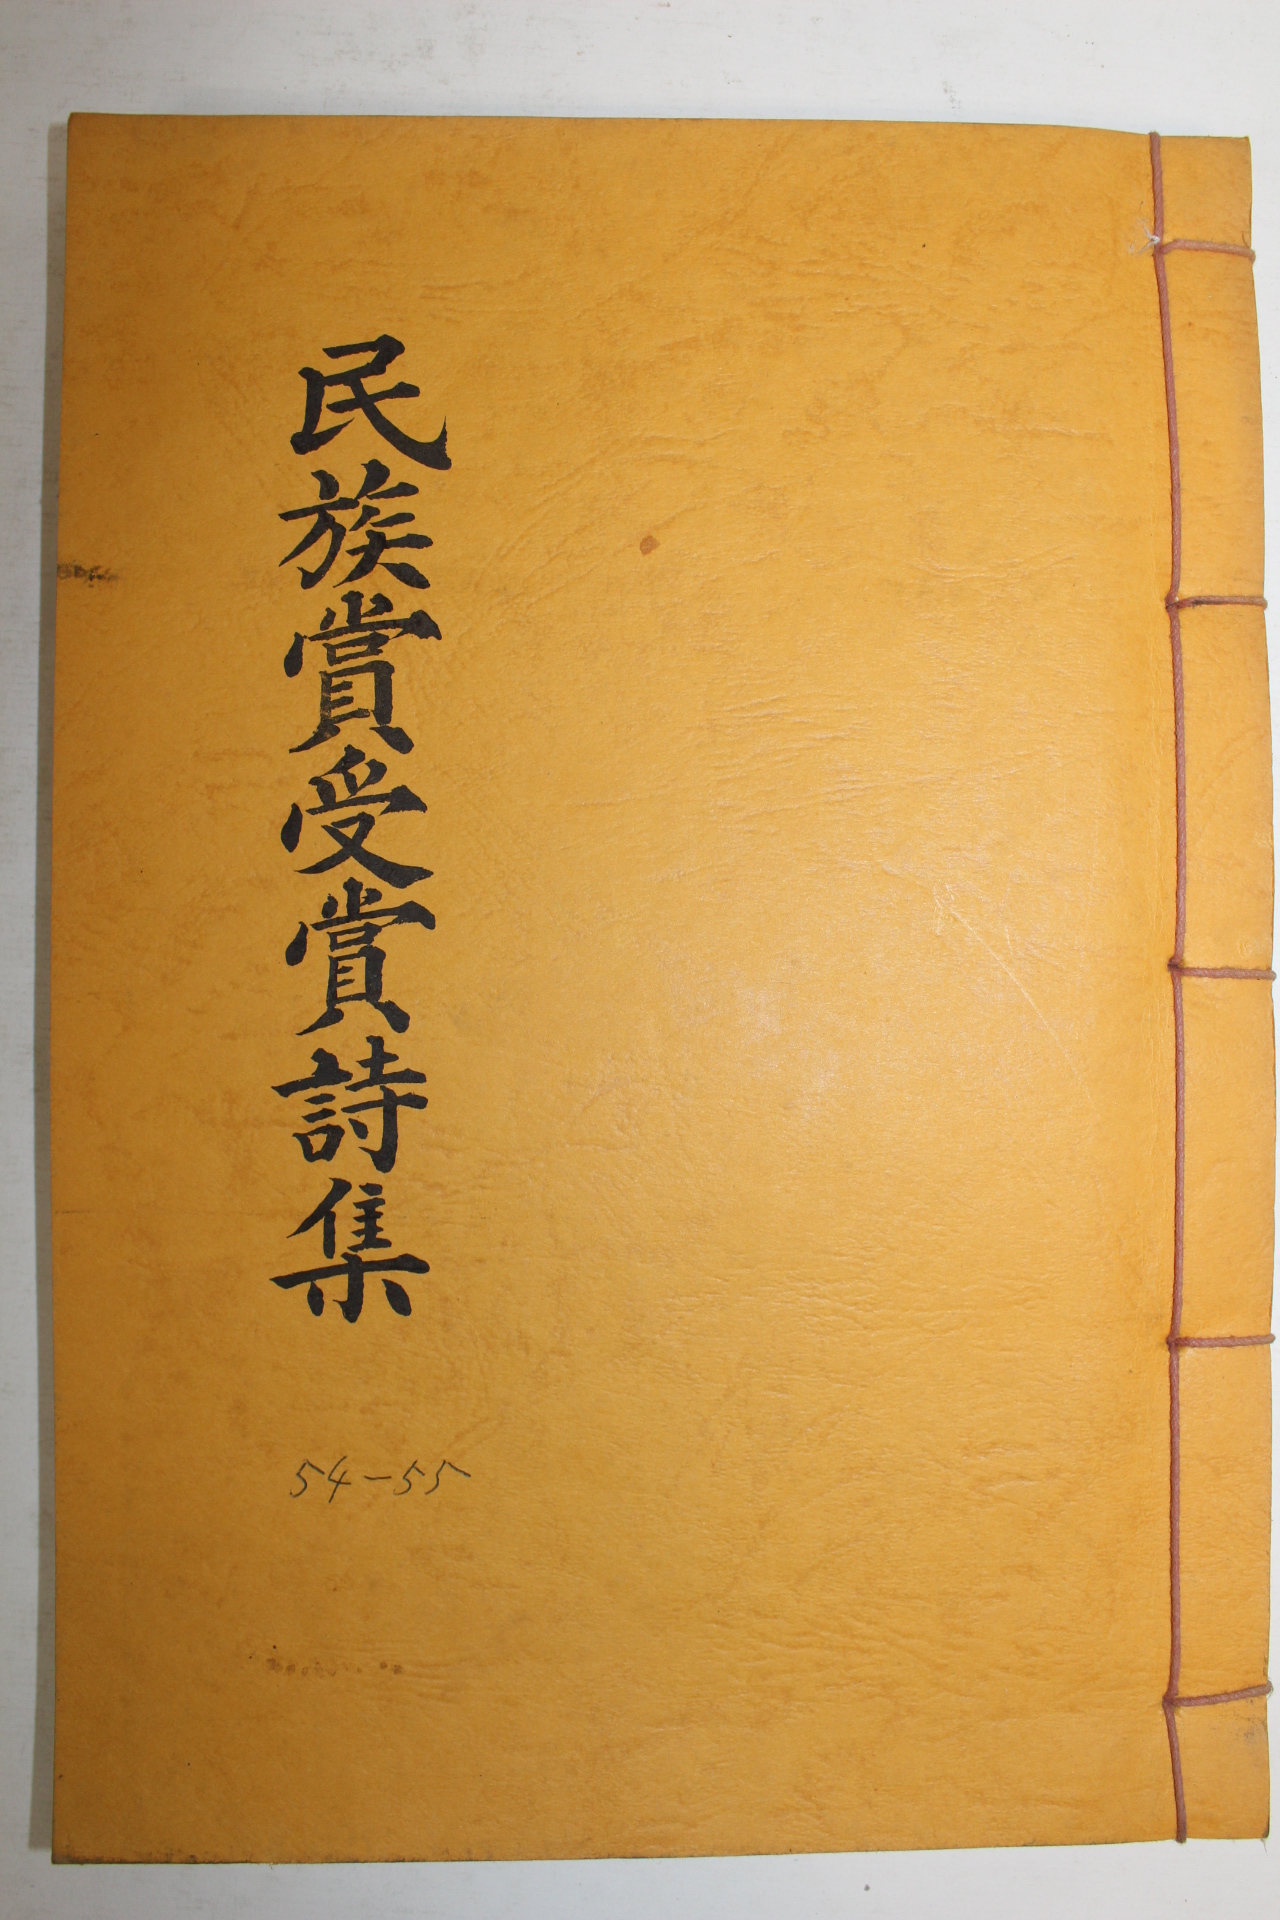 民族賞受賞詩集
54-55